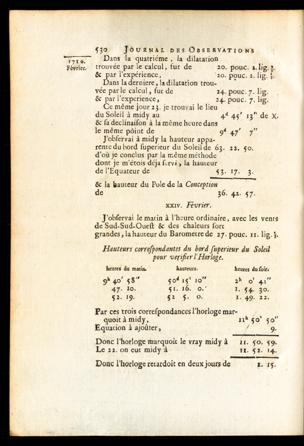 530 JOURNAL DES OBSERVATIONS
1710.
Février.
Dans la quatriéme, la dilatation
trouvée par le calcul, fut de 20. pouc. 1. lig.
& par l'expérience, 20. pouc. 1. lig.
Dans la derniere, la dilatation trou-
vée par le calcul, fut de 24. pouc. 7. lig.
& par l'experience, 24. pouc. 7. lig.
Ce même jour 23. je trouvai le lieu
du Soleil à midy au 4d 45' 13" de X.
& sa declinaison à la même heure dans
le même point de 9d 47' 7"
J'observai à midy la hauteur appa-
rente du bord superieur du Soleil de 63. 22. 50.
d'où je conclus par la même méthode
dont je m'étois déja servi, la hauteur
de l'Equateur de 53. 17. 3.
& la hauteur du Pole de la Conception
de 36. 42. 57.
XXIV. Février.
J'observai le matin à l'heure ordinaire, avec les vents
de Sud-Sud-Ouest & des chaleurs fort
grandes, la hauteur du Barometre de 27. pouc. 11. lig.
Hauteurs correspondantes du bord superieur du Soleil
pour verifier l'Horloge.
heures du matin. hauteurs. heures du soir.
9h 40' 58" 50d 15' 10" 2h 0' 41"
47. 10. 51. 16. 0. 1. 54. 30.
52. 19. 52. 5. 0. 1. 49. 22.
Par ces trois correspondances l'horloge mar-
quoit à midy, 11h 50' 50"
Equation à ajoûter, 9.
Donc l'horloge marquoit le vray midy à 11. 50. 59.
Le 22. on eut midy à 11. 52. 14.
Donc l'horloge retardoit en deux jours de 1. 15.